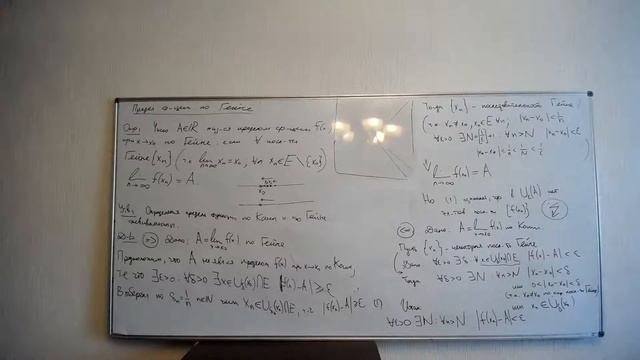 Предел ф-ции по Гейне
Опр. Число A∈ℝ наз-ся пределом ф-ции f(x)
при x→x₀ по Гейне, если ∀ посл-ти
Гейне {xₙ} (т.к. lim xₙ=x₀, ∀n xₙ∈E∖{x₀})
n→∞
lim f(xₙ) = A
n→∞
Утв. Определения предела функции по Коши и по Гейне
эквивалентны.
Д-во (=>) Дано: A = lim f(x) по Гейне
x→x₀
Предположим, что A не явл-ся пределом f(x) при x→x₀ по Коши,
т.е. что ∃ε>0: ∀δ>0 ∃x∈U_δ(x₀)∩E |f(x)-A|≥ε
Выберем по δₙ=1/n n∈ℕ xₙ∈U_δₙ(x₀)∩E, т.ч. |f(xₙ)-A|≥ε (1)
Тогда {xₙ} - последовательность Гейне
(т.к. xₙ≠x₀, xₙ∈E ∀n; |xₙ-x₀|<1/n
∀ε>0 ∃N=[1/ε]+1: ∀n>N |xₙ-x₀|<ε
|xₙ-x₀|<1/n<1/N<ε
⇓
lim f(xₙ) = A
n→∞
Но (1) что в U_ε(A) нет
{f(xₙ)}
(<=) Дано: A = lim f(x) по Коши
x→x₀
Пусть {xₙ} - некоторая посл-ть Гейне
Дано ∀ε>0 ∃δ>0: ∀x∈U_δ(x₀)∩E |f(x)-A|<ε
Тогда ∀δ>0 ∃N: ∀n>N |xₙ-x₀|<δ
или 0<|xₙ-x₀|<δ
(т.к. xₙ≠x₀ по Гейне)
или xₙ∈U_δ(x₀)
Итак
∀ε>0 ∃N: ∀n>N |f(xₙ)-A|<ε